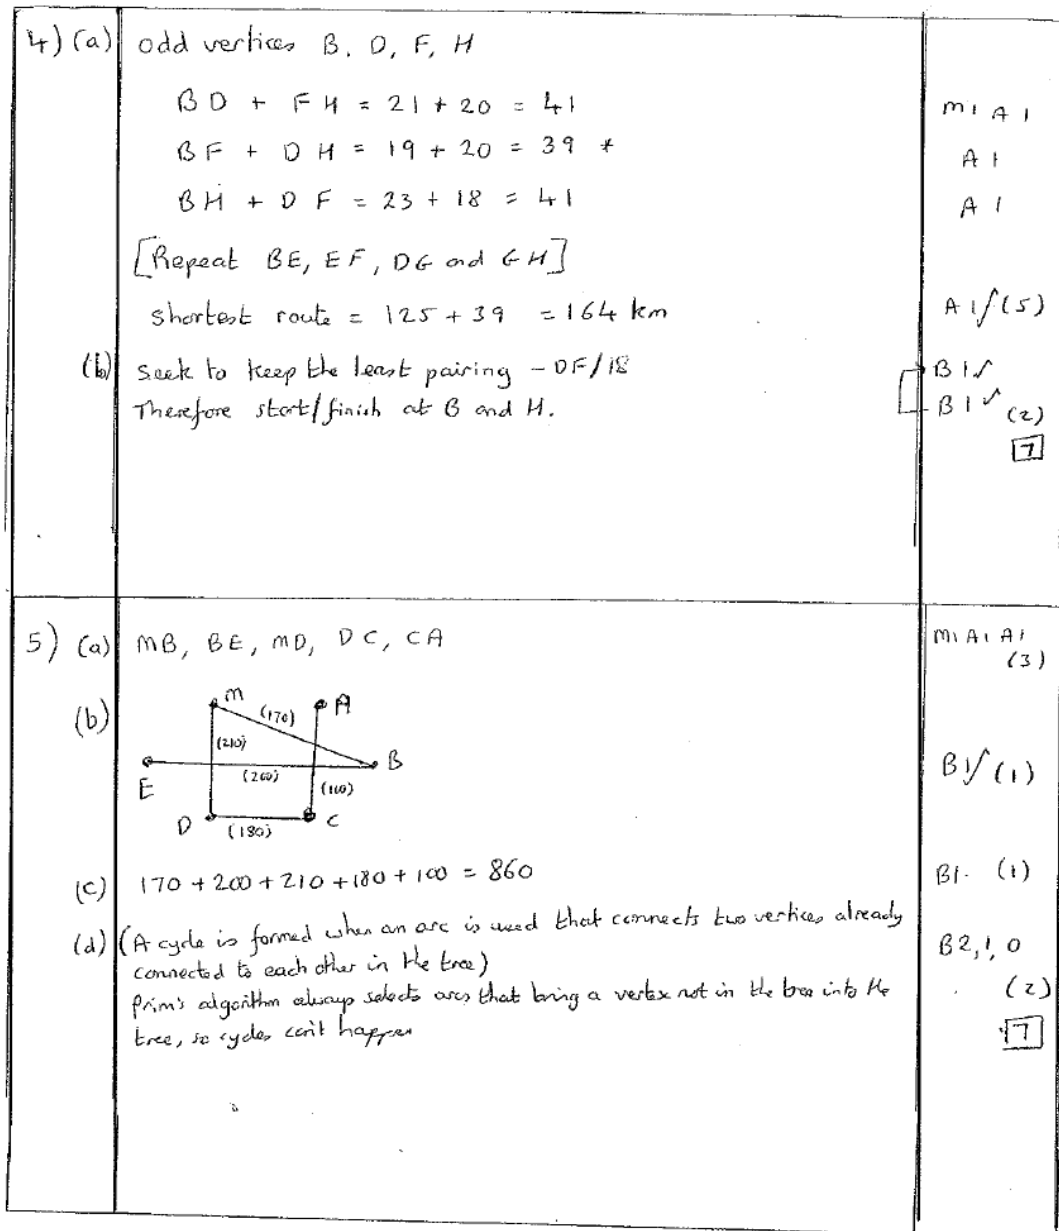 4) (a) odd vertices B, D, F, H
BD + FH = 21 + 20 = 41 M1 A1
BF + DH = 19 + 20 = 39 * A1
BH + DF = 23 + 18 = 41 A1
[Repeat BE, EF, DG and GH]
Shortest route = 125 + 39 = 164 km A1√ (5)
(b) Seek to keep the least pairing - DF/18 B1√
Therefore start/finish at B and H. B1√ (2)
7
5) (a) MB, BE, MD, DC, CA M1 A1 A1
(3)
(b)
M
A
(170)
(210)
B
(200)
E
(100)
B1√ (1)
D
(180)
C
(c) 170 + 200 + 210 + 180 + 100 = 860 B1. (1)
(d) (A cycle is formed when an arc is used that connects two vertices already
connected to each other in the tree) B2,1,0
Prim's algorithm always selects arcs that bring a vertex not in the tree into the (2)
tree, so cycles can't happen
7